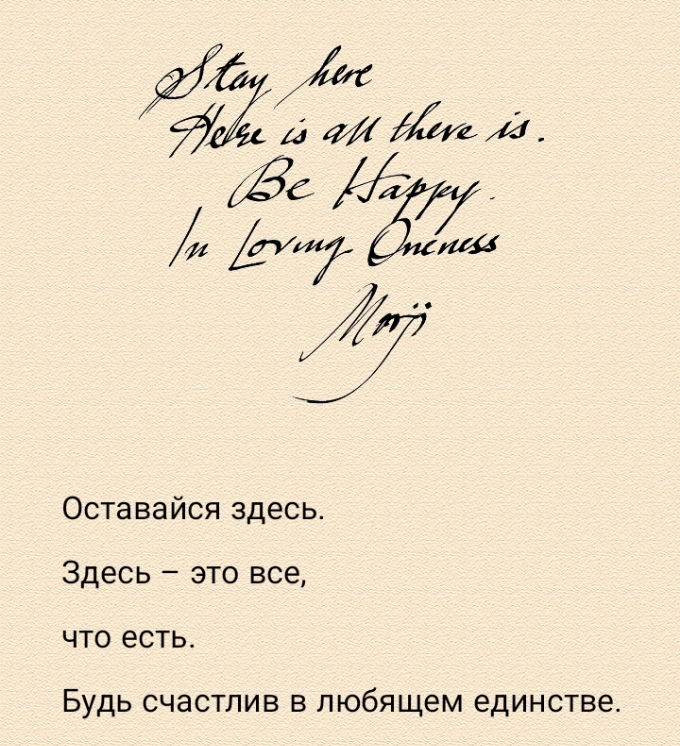 Stay here
Here is all there is.
Be Happy.
In Loving Oneness
Mooji
Оставайся здесь.
Здесь – это все,
что есть.
Будь счастлив в любящем единстве.